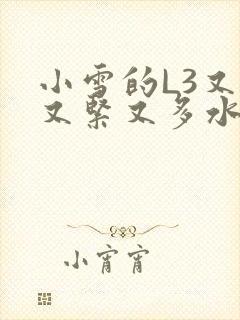 小雪的L3又
又緊又多水
小宵宵